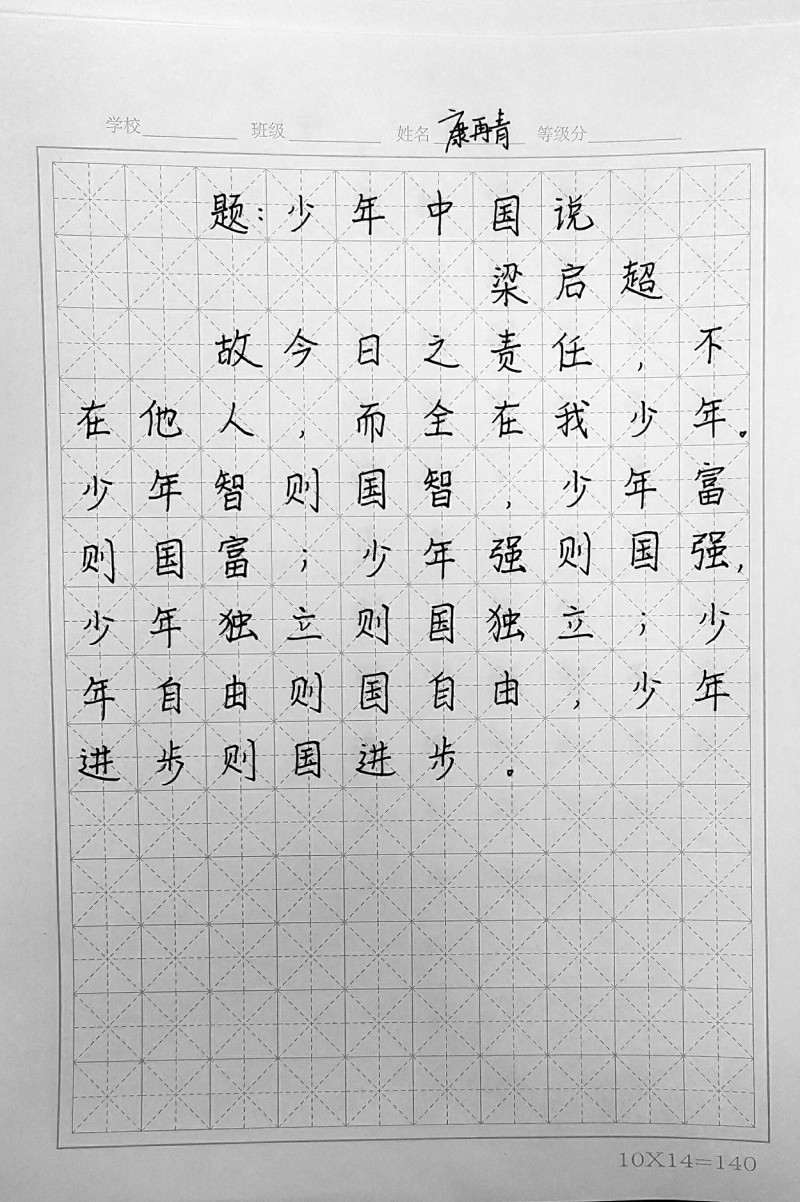 学校 班级 姓名 康再青 等级分
题:少年中国说
梁启超
故今日之责任,不
在他人,而全在我少年。
少年智则国智,少年富
则国富;少年强则国强,
少年独立则国独立;少
年自由则国自由,少年
进步则国进步。
10X14=140